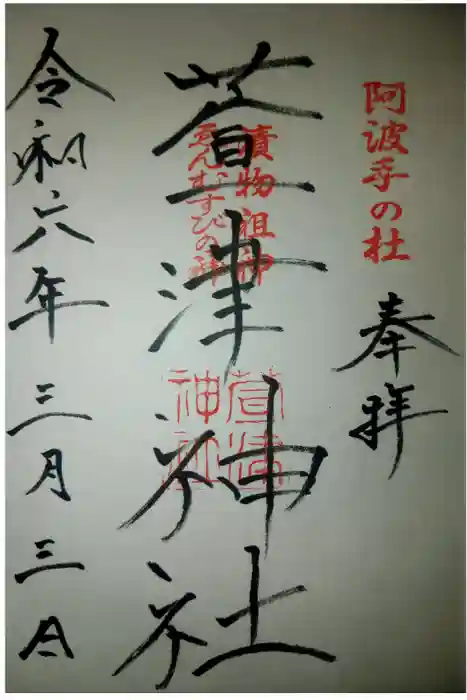 阿波手の杜
奉拝
漬物祖神
ゑんむすびの神
萱津神社
萱津
神社
令和六年三月三日